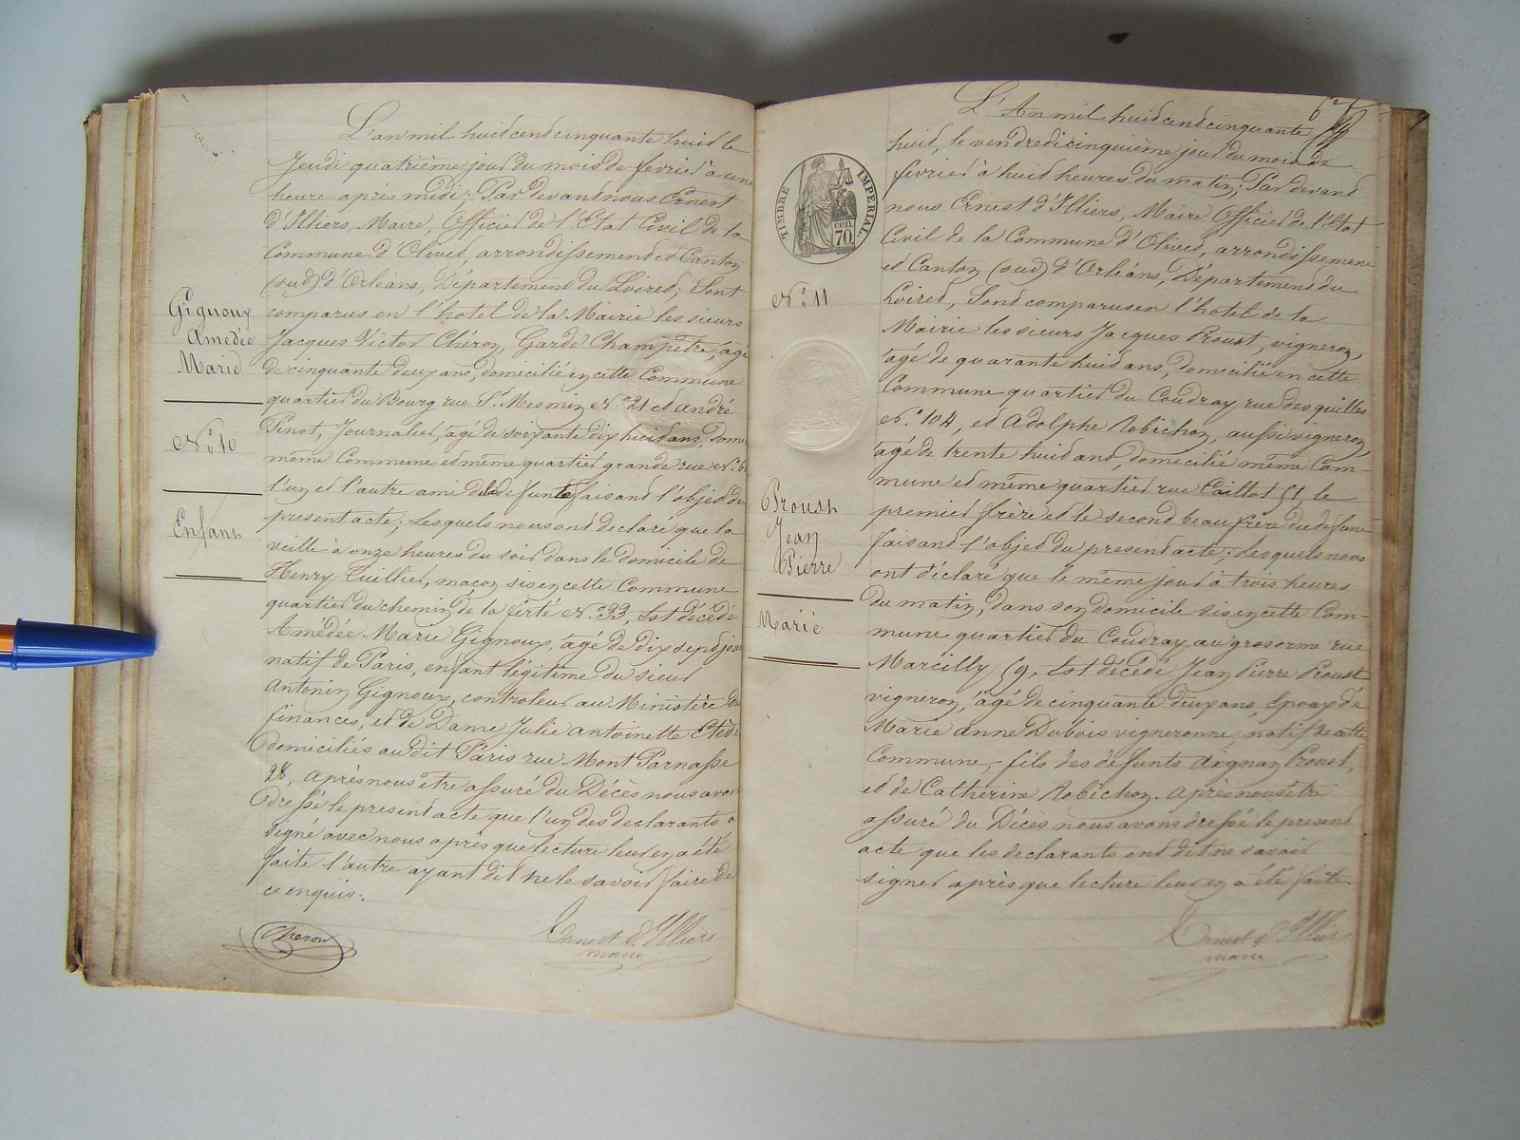 L'an mil huit cent cinquante huit le
Jeudi quatrième jour du mois de fevrier à une
heure après midi; Par devant nous Ernest
d'Illiers, Maire, Officier de l'Etat Civil de la
Commune d'Olivet, arrondissement et Canton
(sud) d'Orléans, Département du Loiret; Sont
comparus en l'hotel de la Mairie les sieurs
Jacques Victor Chéron, Garde Champêtre, agé
de cinquante deux ans, domicilié en cette Commune
quartier du Bourg rue St Mesmin N.o 21 et andré
Pinot, Journalier, agé de soixante dix huit ans, dom.
même Commune et même quartier grande rue N.o
l'un et l'autre ami de la defunte faisant l'objet du
present acte; Lesquels nous ont declaré que la
veille à onze heures du soir dans le domicile de
Henry Tuillier, maçon sis en cette Commune
quartier du chemin de la ferté N.o 33, Est décédé
Amédée Marie Gignoux, agé de dix sept jours
natif de Paris, enfant légitime du sieur
Antonin Gignoux, controleur au Ministère des
finances, et de Dame Julie antoinette
domiciliés au dit Paris rue Mont Parnasse
28, Après nous être assuré du Décès nous avons
dressé le present acte que l'un des declarants a
signé avec nous après que lecture leur en a été
faite l'autre ayant dit ne le savoir faire de
ce enquis.
Cheron
Ernest d'Illiers
maire
Gignoux
Amédée
Marie
N.o 10
Enfant
L'An mil huit cent cinquante
huit, le vendredi cinquième jour du mois de
fevrier à huit heures du matin; Par devant
nous Ernest d'Illiers, Maire Officier de l'Etat
Civil de la Commune d'Olivet, arrondissement
et Canton (sud) d'Orléans, Département du
Loiret, Sont comparus en l'hotel de la
Mairie les sieurs Jacques Proust, vigneron,
agé de quarante huit ans, domicilié en cette
Commune quartier du Coudray rue des quilles
N.o 104, et Adolphe Robichon, aussi vigneron
agé de trente huit ans, domicilié même Com-
mune et même quartier rue Caillot 51, le
premier frère et le second beau frère du defunt
faisant l'objet du present acte; Lesquels nous
ont déclaré que le même jour à trois heures
du matin, dans son domicile sis en cette Com-
mune quartier du Coudray au gros orme rue
Marcilly 59, Est décédé Jean Pierre Proust
vigneron, agé de cinquante deux ans, Epoux de
Marie Anne Dubois vigneronne, natif de cette
Commune,- fils des défunts Aignan Proust,
et de Catherine Robichon. Après nous être
assuré du Décès nous avons dressé le present
acte que les declarants ont dit ne savoir
signer après que lecture leur en a été faite.
Ernest d'Illiers
maire
TIMBRE IMPERIAL.
70
N.o 11
Proust
Jean
Pierre
Marié